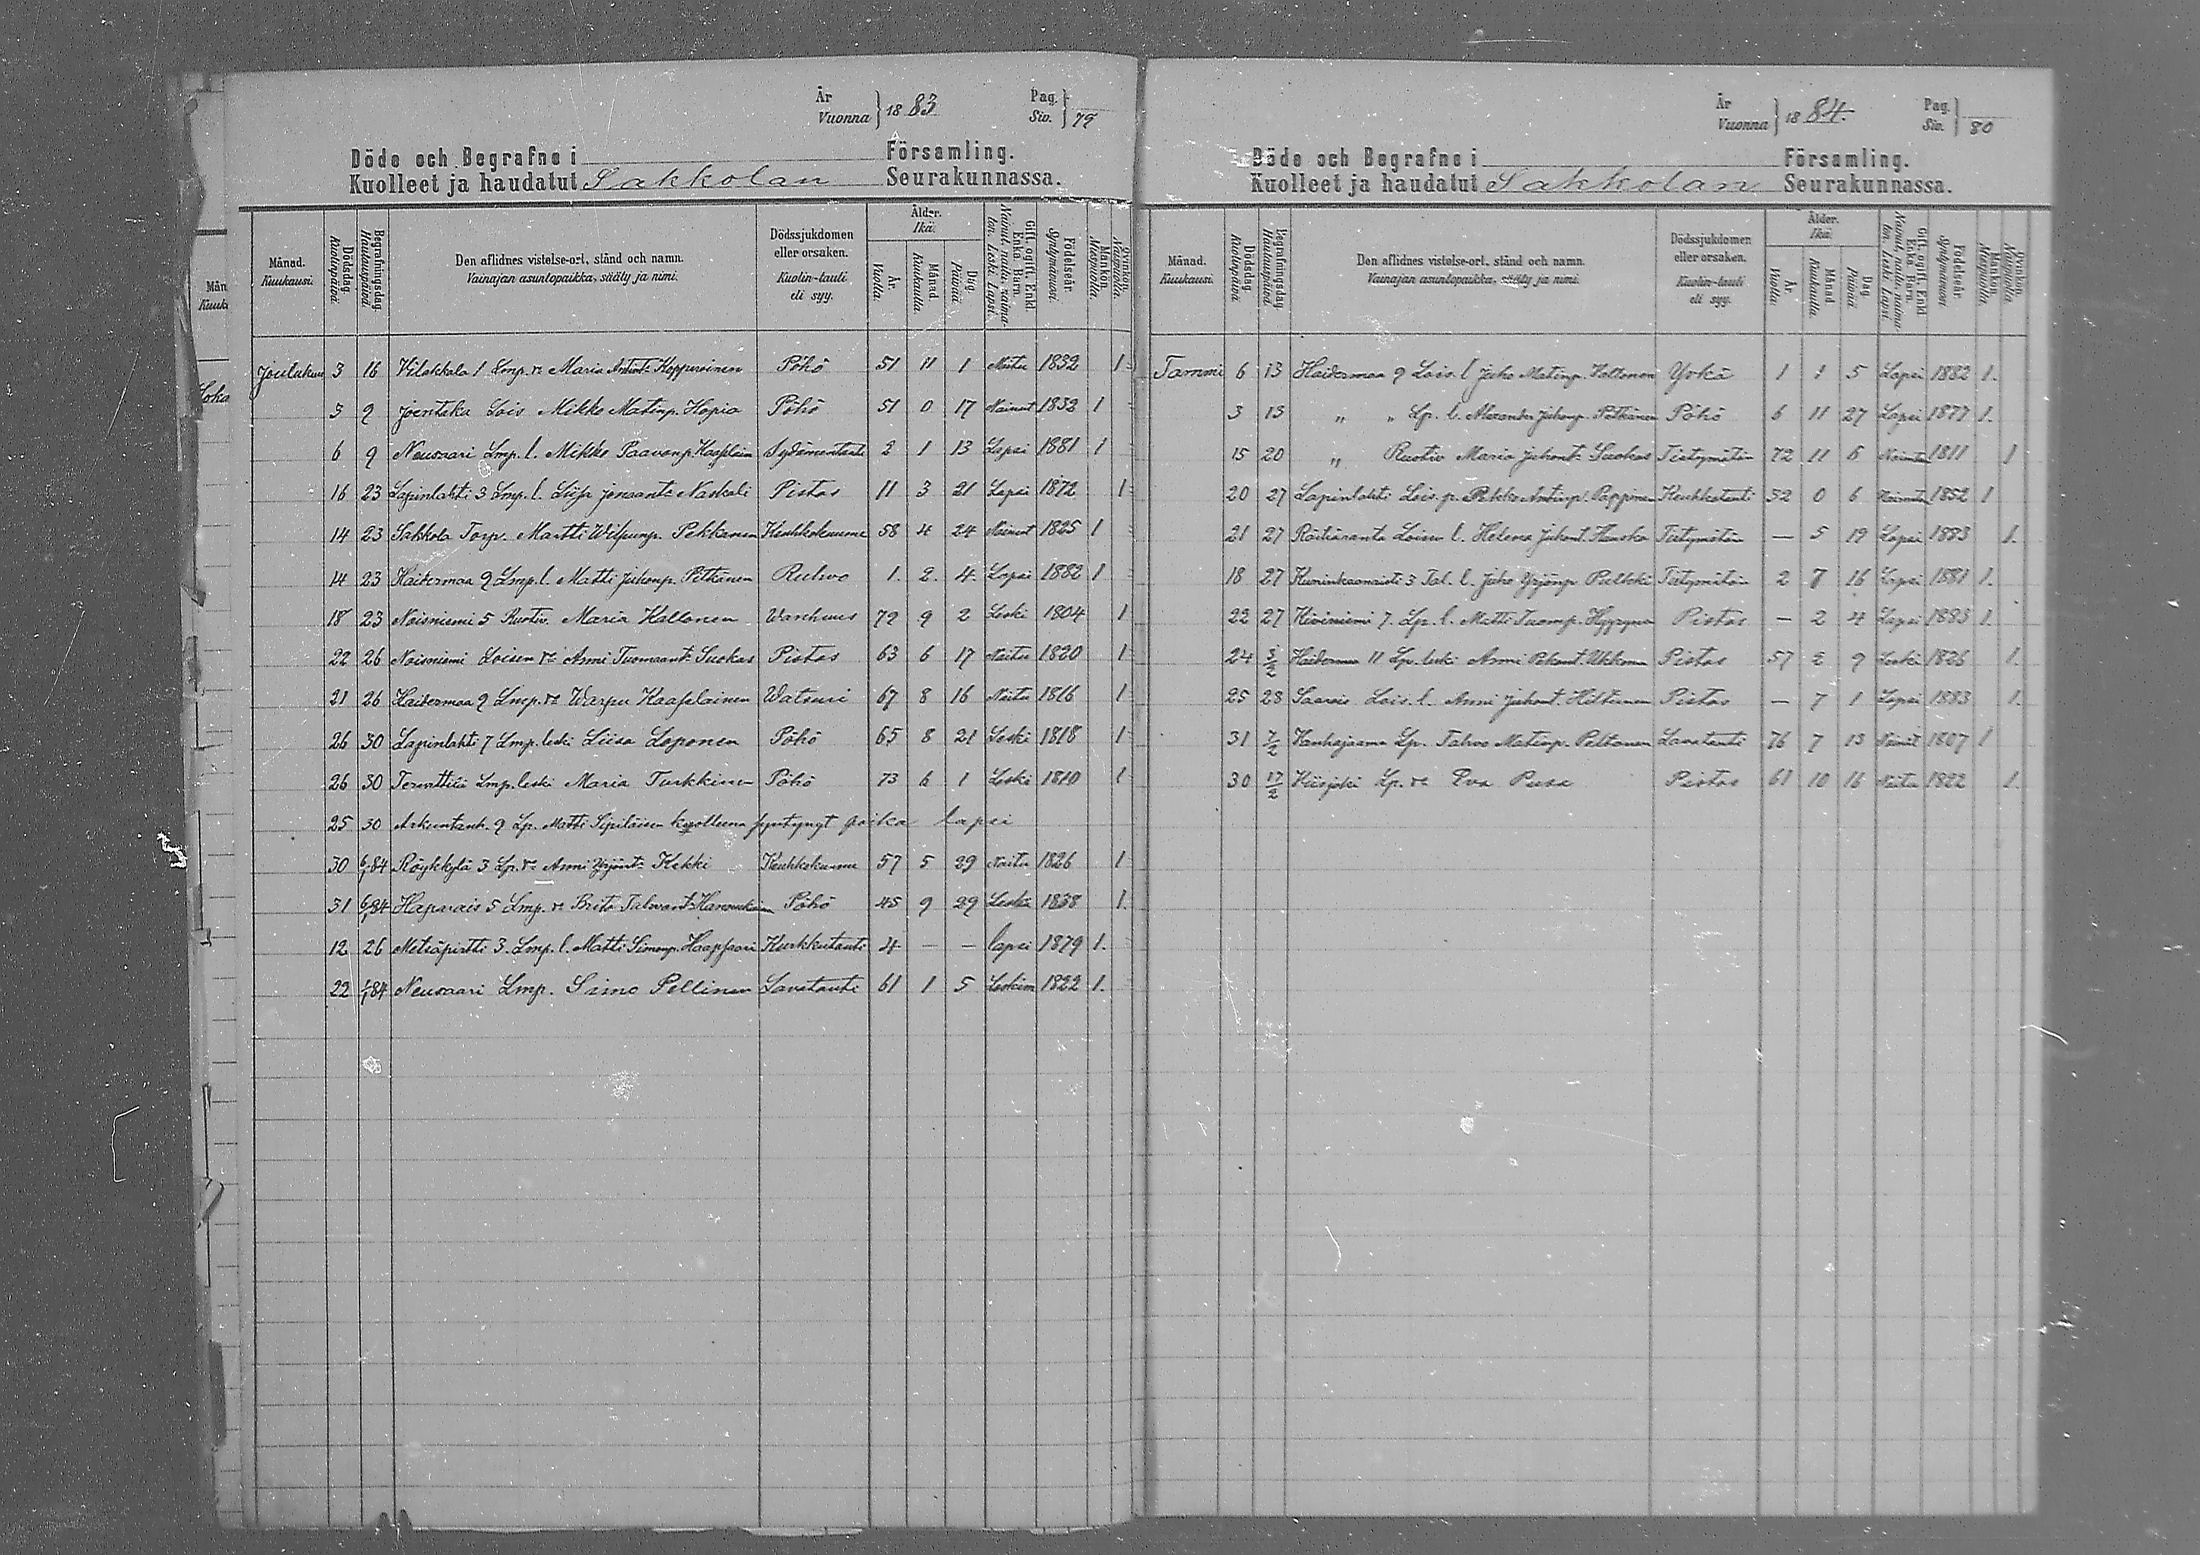 År
Vuonna } 18 83
Pag.
Siv. } 79
Döde och Begrafne i Församling.
Kuolleet ja haudatut Sakkolan Seurakunnassa.
Månad. Kuukausi. Dödsdag. Kuolinpäivä. Begrafningsdag. Hautauspäivä. Den aflidnes vistelse-ort, stånd och namn. Vainajan asuntopaikka, sääty ja nimi. Dödssjukdomen eller orsaken. Kuolin-tauti eli syy. Ålder. Ikä. År. Vuotta. Månad. Kuukautta. Dag. Päivää. Gift, ogift, Enkl. Enka, Barn. Nainut, naitu, naimaton, Leski, Lapsi. Födelseår. Syntymävuosi. Mankön. Miespuolia. Qvinkön. Naispuolia.
Joulukuu 3 16 Vilakkala 1 Lmp. vo Maria Antint. Hoppuroinen Pöhö 51 11 1 Naitu 1832 1
5 9 Joentaka Lois. Mikko Matinp. Hopia Pöhö 51 0 17 Nainut 1832 1
6 9 Neusaari Lmp. l. Mikko Paavonp. Kaaslain Sydämentauti 2 1 13 Lapsi 1881 1
16 23 Lapinlahti 3 Lmp. l. Liisa Joonaant. Naskali Pistos 11 3 21 Lapsi 1872 1
14 23 Sakkola Torp. Martti Wilpunp. Pekkanen Keuhkokuume 58 4 24 Nainut 1825 1
14 23 Haitermaa 9 Lmp. l. Matti Juhonp. Pitkänen Rulwo 1. 2. 4. Lapsi 1882 1
18 23 Noisniemi 5 Ruotiv. Maria Kallonen Wanhuus 79 9 2 Leski 1804 1
22 26 Noisniemi Loisen vo Anni Tuomaant. Suokas Pistos 63 6 17 Naitu 1820 1
21 26 Haitermaa 9 Lmp. vo Warpu Kaaslainen Watsuri 67 8 16 Naitu 1816 1
26 30 Lapinlahti 7 Lmp. leski Liisa Loponen Pöhö 65 8 21 Leski 1818 1
26 30 Terwittilä Lmp. leski Maria Turkkinen Pöhö 73 6 1 Leski 1810 1
25 30 9 Lp. Matti Sipiläisen kuolleena syntynyt poika lapsi
30 6/1 84 Röykkylä 3 Lp. vo Anni Yrjönt. Kekki Keuhkokuume 57 5 29 Naitu 1826 1
31 6/1 84 Hapurais 5 Lmp. vo Brita Talwont. Pöhö 45 9 29 Leski 1838 1.
12 26 Metsäpirtti 3. Lmp. l. Matti Simonp. Haapsaari Kurkkutauti 4 — — lapsi 1879 1.
22 1/1 84 Neusaari Lmp. Simo Pellinen Lavatauti 61 1 5 Leskim 1822 1.
År
Vuonna } 18 84.
Pag.
Siv. } 80
Döde och Begrafne i Församling.
Kuolleet ja haudatut Sakkolan Seurakunnassa.
Månad. Kuukausi. Dödsdag. Kuolinpäivä. Begrafningsdag. Hautauspäivä. Den aflidnes vistelse-ort, stånd och namn. Vainajan asuntopaikka, sääty ja nimi. Dödssjukdomen eller orsaken. Kuolin-tauti eli syy. Ålder. Ikä. År. Vuotta. Månad. Kuukautta. Dag. Päivää. Gift, ogift, Enkl. Enka, Barn. Nainut, naitu, naimaton, Leski, Lapsi. Födelseår. Syntymävuosi. Mankön. Miespuolia. Qvinkön. Naispuolia.
Tammi 6 13 Haitermaa 9 Lois. l Juho Matinp. Kallonen Yskä 1 1 5 Lapsi 1882 1.
3 13 „ „ Lp. l. Alexander Juhonp. Pitkänen Pöhö 6 11 27 Lapsi 1877 1.
15 20 „ Ruotiv Maria Juhont. Suokas Tietymätön 72 11 6 1811 1
20 27 Lapinlahti Lois. p. Pekka Antinp. Papponen Keuhkotauti 32 0 6 1852 1
21 27 Röisäranta Loisen l. Helena Juhont. Hauska Tietymätön — 5 19 Lapsi 1883 1.
18 27 Kuninkaanristi 3 Tal. l. Juho Yrjönp Pulkki Tietymätön 2 7 16 Lapsi 1881 1.
22 27 Kiviniemi 7. Lp. l. Matti Tuomp. Hyyryne Pistos — 2 4 Lapsi 1883 1.
24 3/2 Haitermaa 11 Lp. leski Anni Pekant. Ukkonen Pistos 57 2 9 Leski 1826 1.
25 28 Saarois Lois. l. Anni Juhont. Hiltunen Pistos — 7 1 Lapsi 1883 1.
31 7/2 Hanhajaama Lp. Tahvo Matinp. Peltonen Lavatauti 76 7 13 Nainut 1807 1
30 17/2 Kiisjoki Lp. vo Eva Pusa Pistos 61 10 16 Naitu 1822 1.